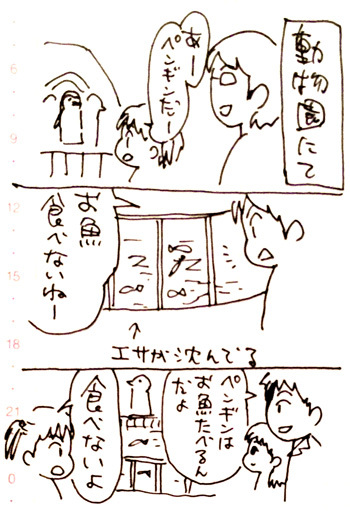 動物園にて
あー
ペンギンだー
6
9
お魚
食べないねー
12
15
↑
エサが沈んでる
18
ペンギンは
お魚たべるん
だよ
食べないよ
21
0